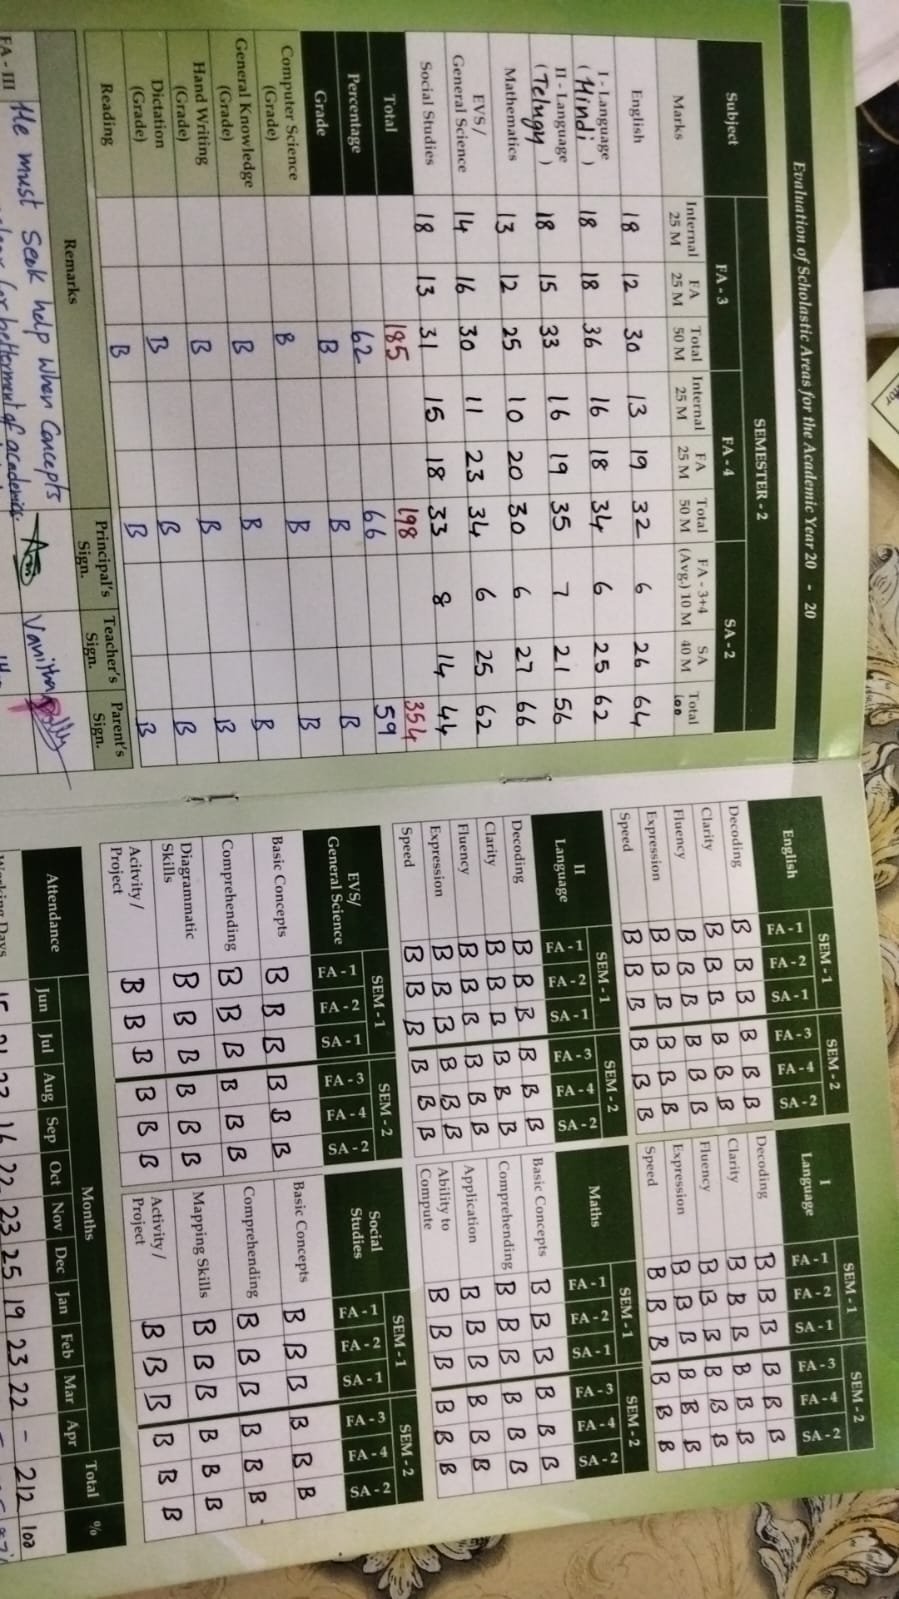 Evaluation of Scholastic Areas for the Academic Year 20 - 20
SEMESTER - 2
Subject FA - 3 FA - 4 SA - 2
Marks Internal 25 M FA 25 M Total 50 M Internal 25 M FA 25 M Total 50 M FA - 3+4 (Avg.) 10 M SA 40 M Total 100
English 18 12 30 13 19 32 6 26 64
I - Language (Hindi) 18 18 36 16 18 34 6 25 62
II - Language (Telugy) 18 15 33 16 19 35 7 21 56
Mathematics 13 12 25 10 20 30 6 27 66
EVS/ General Science 14 16 30 11 23 34 6 25 62
Social Studies 18 13 31 15 18 33 8 14 44
Total 185 198 354
Percentage 62 66 59
Grade B B B
Computer Science (Grade) B B B
General Knowledge (Grade) B B B
Hand Writing (Grade) B B B
Dictation (Grade) B B B
Reading B B B
Remarks Principal's Sign. Teacher's Sign. Parent's Sign.
FA - III He must seek help when concepts
for betterment of academics.
Vanitha
English SEM - 1 SEM - 2
FA - 1 FA - 2 SA - 1 FA - 3 FA - 4 SA - 2
Decoding B B B B B B
Clarity B B B B B B
Fluency B B B B B B
Expression B B B B B B
Speed B B B B B B
I Language SEM - 1 SEM - 2
FA - 1 FA - 2 SA - 1 FA - 3 FA - 4 SA - 2
Decoding B B B B B B
Clarity B B B B B B
Fluency B B B B B B
Expression B B B B B B
Speed B B B B B B
II Language SEM - 1 SEM - 2
FA - 1 FA - 2 SA - 1 FA - 3 FA - 4 SA - 2
Decoding B B B B B B
Clarity B B B B B B
Fluency B B B B B B
Expression B B B B B B
Speed B B B B B B
Maths SEM - 1 SEM - 2
FA - 1 FA - 2 SA - 1 FA - 3 FA - 4 SA - 2
Basic Concepts B B B B B B
Comprehending B B B B B B
Application B B B B B B
Ability to Compute B B B B B B
EVS/ General Science SEM - 1 SEM - 2
FA - 1 FA - 2 SA - 1 FA - 3 FA - 4 SA - 2
Basic Concepts B B B B B B
Comprehending B B B B B B
Diagrammatic Skills B B B B B B
Acitvity / Project B B B B B B
Social Studies SEM - 1 SEM - 2
FA - 1 FA - 2 SA - 1 FA - 3 FA - 4 SA - 2
Basic Concepts B B B B B B
Comprehending B B B B B B
Mapping Skills B B B B B B
Activity / Project B B B B B B
Attendance Months Total %
Jun Jul Aug Sep Oct Nov Dec Jan Feb Mar Apr
Working Days 15 21 23 16 22 23 25 19 23 22 - 212 100